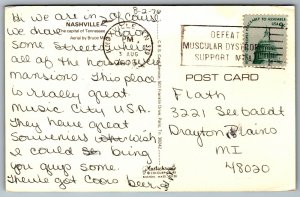 8-2-76
NASHVILLE
The capitol of Tennessee
Aerial by Bruce
PM
3 AUG
DEFEAT
MUSCULAR DYSTROPHY
SUPPORT MDA
Hi we are in
we drove down
some Streets where
all of the houses were
mansions. This place
is really great
Music City USA.
They have great
Souvenirs wish
I could bring
you guys some.
They've got Coors beer
POST CARD
Flath
3221 Seebaldt
Drayton Plains
MI
48020